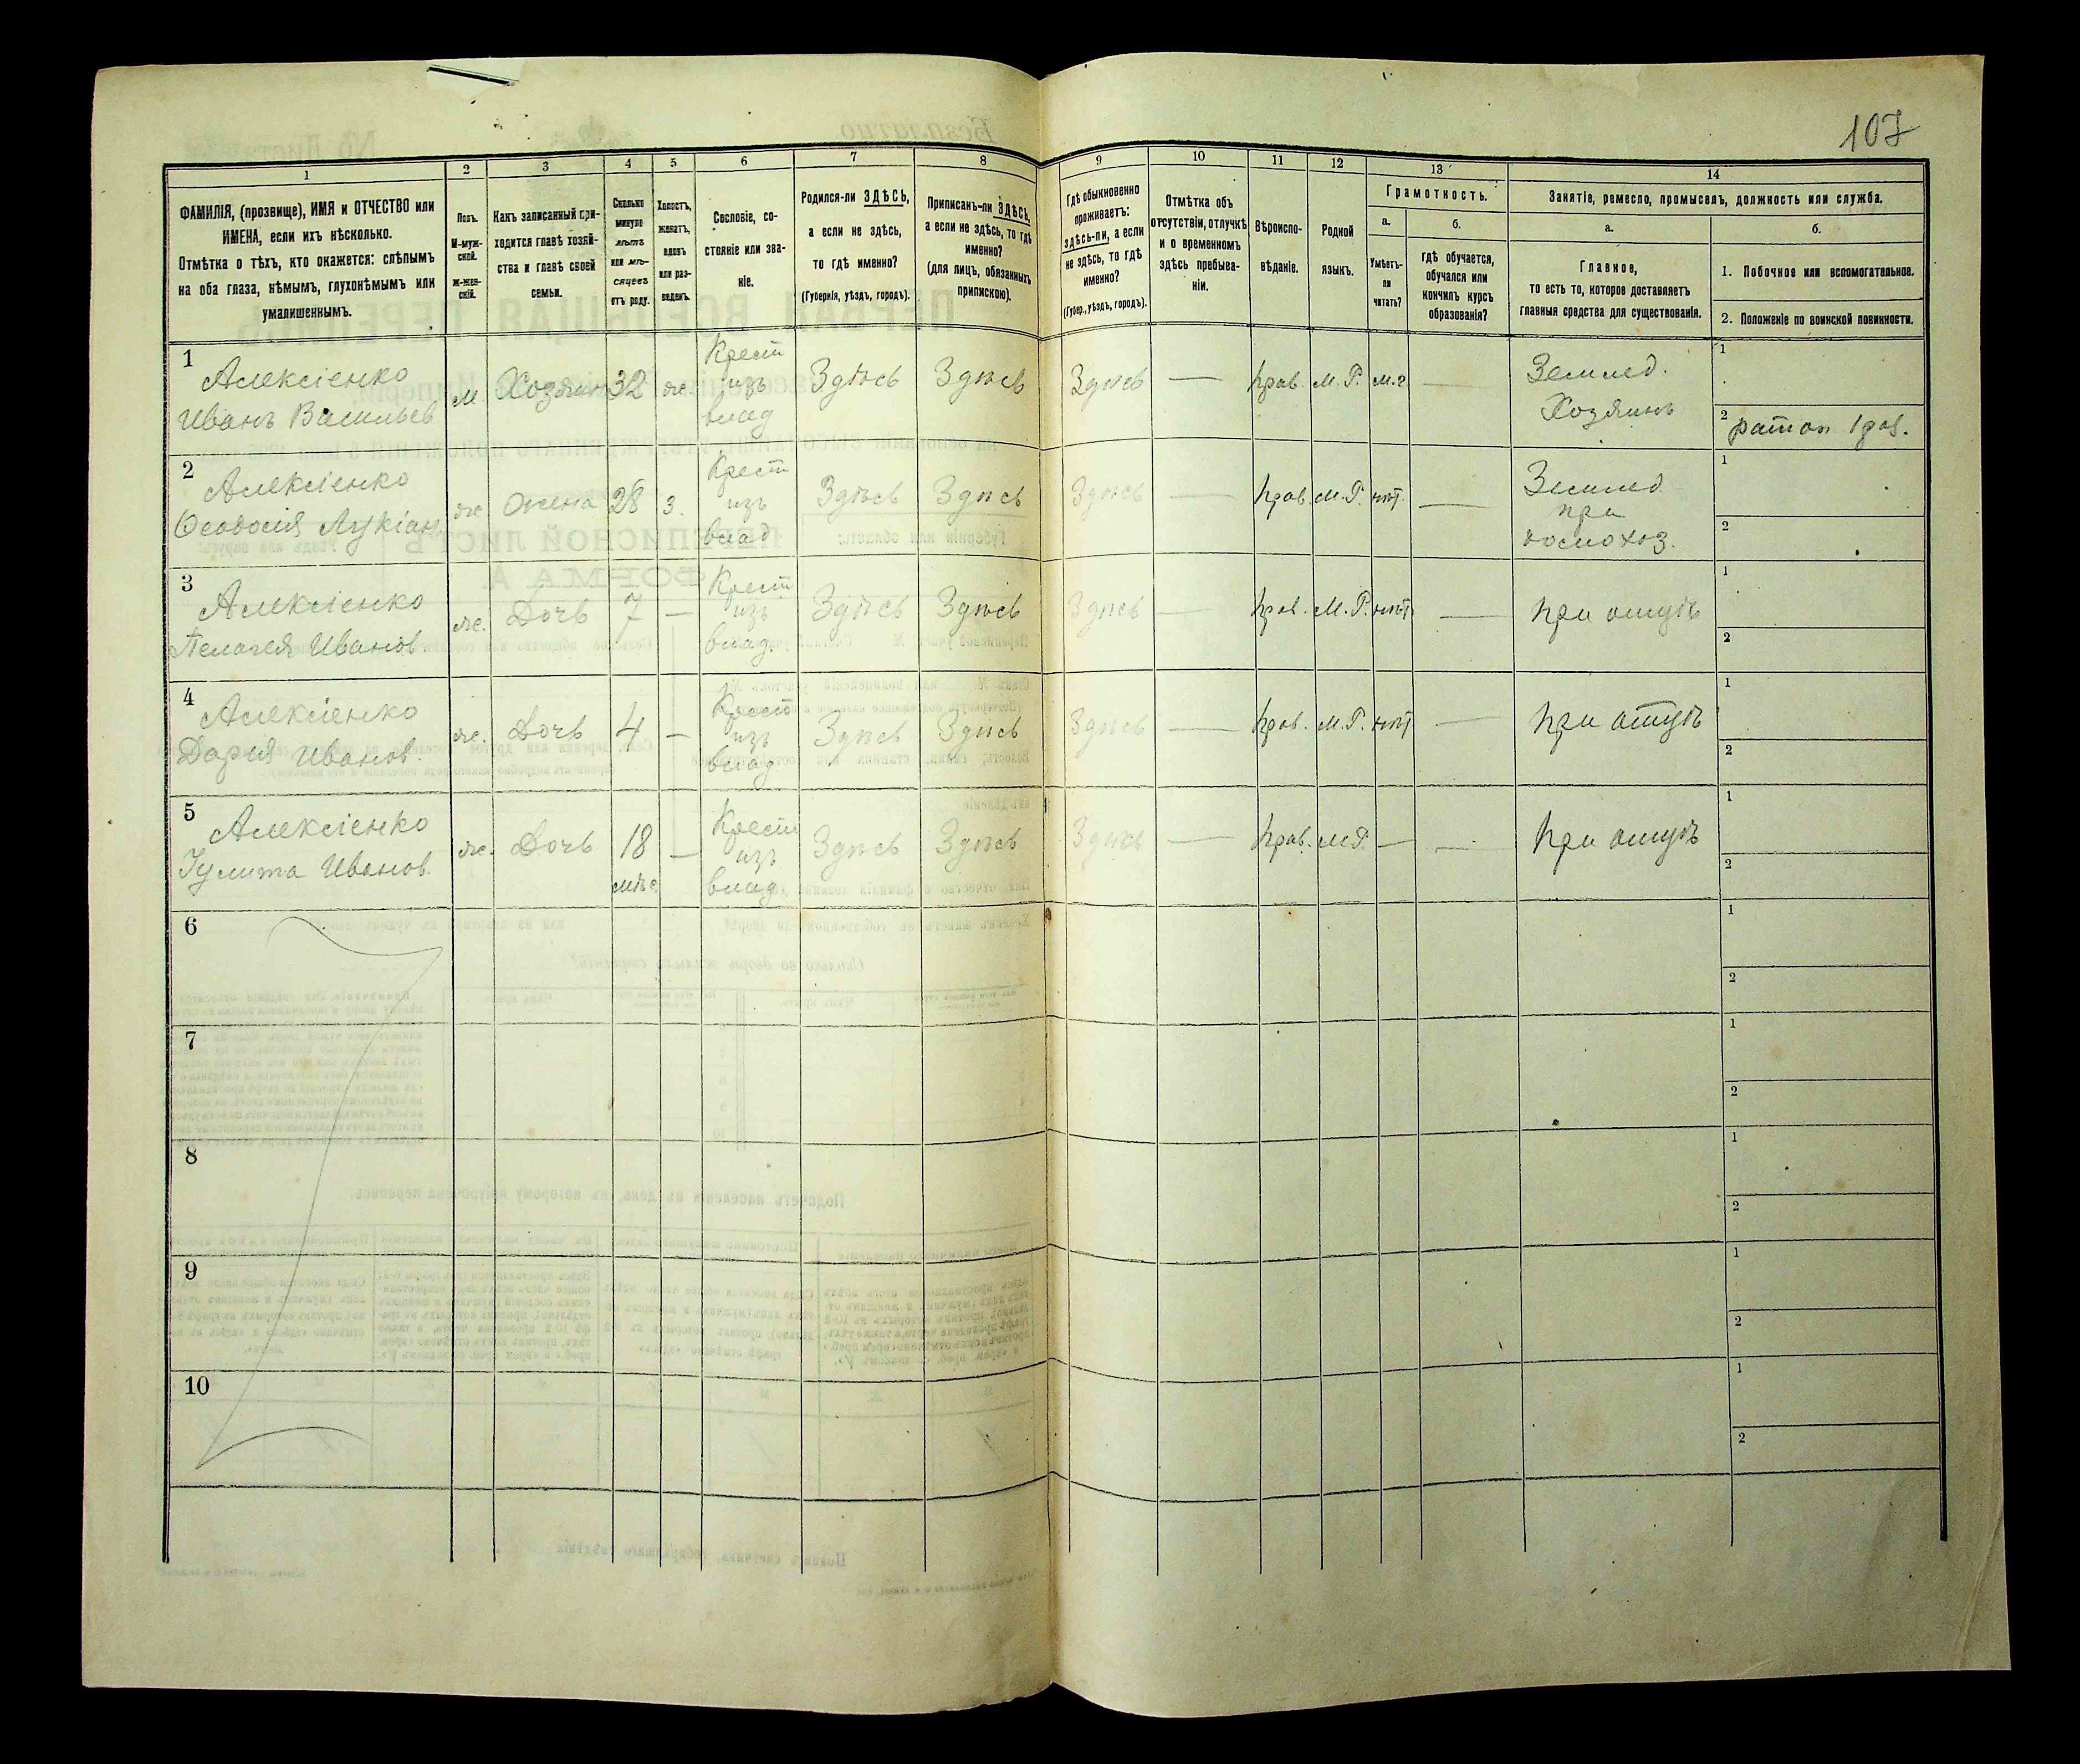 107
1 2 3 4 5 6 7 8 9 10 11 12 13 14
ФАМИЛІЯ, (прозвище), ИМЯ и ОТЧЕСТВО или
ИМЕНА, если ихъ нѣсколько.
Отмѣтка о тѣхъ, кто окажется: слѣпымъ
на оба глаза, нѣмымъ, глухонѣмымъ или
умалишеннымъ.
Полъ.
М-муж-
ской.
Ж-жен-
скій.
Какъ записанный при-
ходится главѣ хозяй-
ства и главѣ своей
семьи.
Сколько
минуло
лѣтъ
или мѣ-
сяцевъ
отъ роду.
Холостъ,
женатъ,
вдовъ
или раз-
веденъ.
Сословіе, со-
стояніе или зва-
ніе.
Родился-ли ЗДѢСЬ,
а если не здѣсь,
то гдѣ именно?
(Губернія, уѣздъ, городъ).
Приписанъ-ли ЗДѢСЬ,
а если не здѣсь, то гдѣ
именно?
(для лицъ, обязанныхъ
припискою).
Гдѣ обыкновенно
проживаетъ:
здѣсь-ли, а если
не здѣсь, то гдѣ
именно?
(Губер., уѣздъ, городъ).
Отмѣтка объ
отсутствіи, отлучкѣ
и о временномъ
здѣсь пребыва-
ніи.
Вѣроиспо-
вѣданіе.
Родной
языкъ.
Грамотность.
а.
Умѣетъ-
ли
читать?
б.
гдѣ обучается,
обучался или
кончилъ курсъ
образованія?
Занятіе, ремесло, промыселъ, должность или служба.
а.
Главное,
то есть то, которое доставляетъ
главныя средства для существованія.
б.
1. Побочное или вспомогательное.
2. Положеніе по воинской повинности.
1
Алексіенко
Иванъ Васильев
м
Хозяин
32
же.
Крест
изъ
влад
Здѣсь
Здѣсь
Здѣсь
—
прав.
М. Р.
—
Землед.
Хозяинъ
1
2
2
Алексіенко
Ѳеодосія Лукіан.
же
Жена
28
з.
Крест
изъ
влад
Здѣсь
Здѣсь
Здѣсь
—
прав.
М. Р.
нѣт.
—
Землед
при
1
2
3
Алексіенко
Пелагея Иванов.
же.
Дочь
7
—
Крест
изъ
влад.
Здѣсь
Здѣсь
Здѣсь
—
прав.
М. Р.
нѣт
—
при отцѣ
1
2
4
Алексіенко
Дарія Иванов.
же.
Дочь
4
—
Крест
изъ
влад
Здѣсь
Здѣсь
Здѣсь
—
прав.
М. Р.
нѣт
—
при отцѣ
1
2
5
Алексіенко
Іулита Иванов.
же.
Дочь
18
мѣс.
—
Крест
изъ
влад.
Здѣсь
Здѣсь
Здѣсь
—
прав.
М Р.
—
—
при отцѣ
1
2
6
1
2
7
1
2
8
1
2
9
1
2
10
1
2